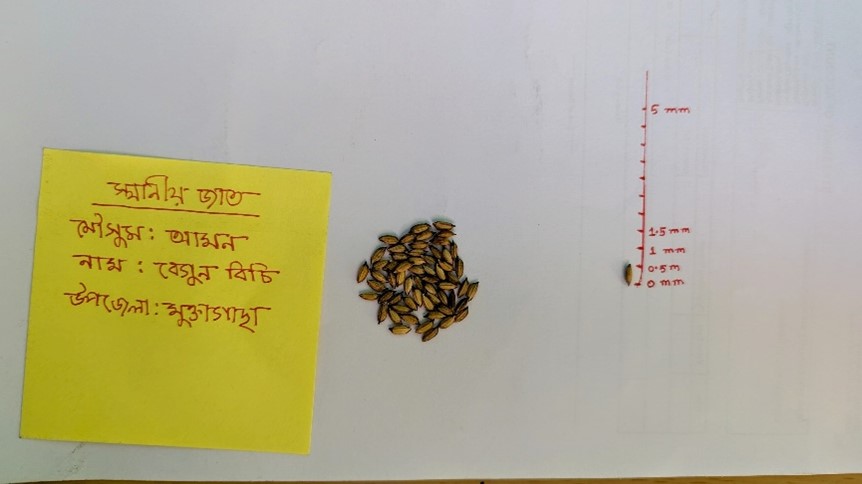 স্থানীয় জাত
মৌসুম: আমন
নাম : বেগুন বিচি
উপজেলা: মুক্তাগাছা
5 mm
1.5 mm
1 mm
0.5 m
0 mm